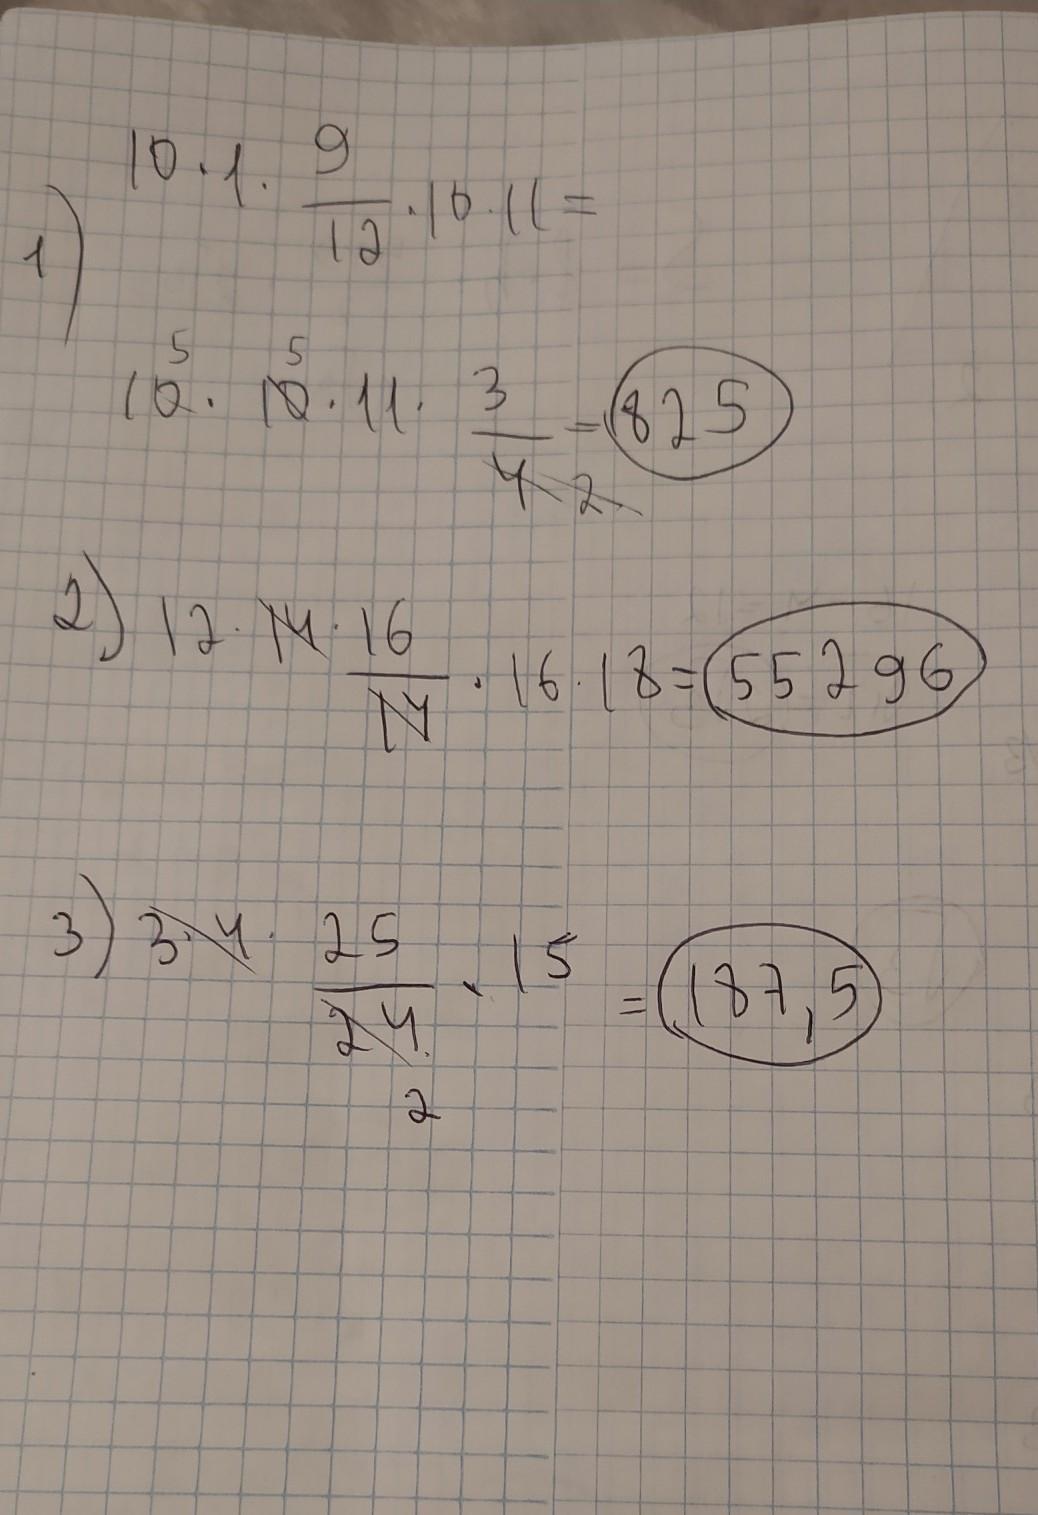 1) 10·1· 9/12 ·10·11=
5 5
10· 10·11· 3/4 2 = 825
2) 12·14· 16/14 · 16·18= 55296
3) 3·4· 25/24 · 15 = 187,5
2